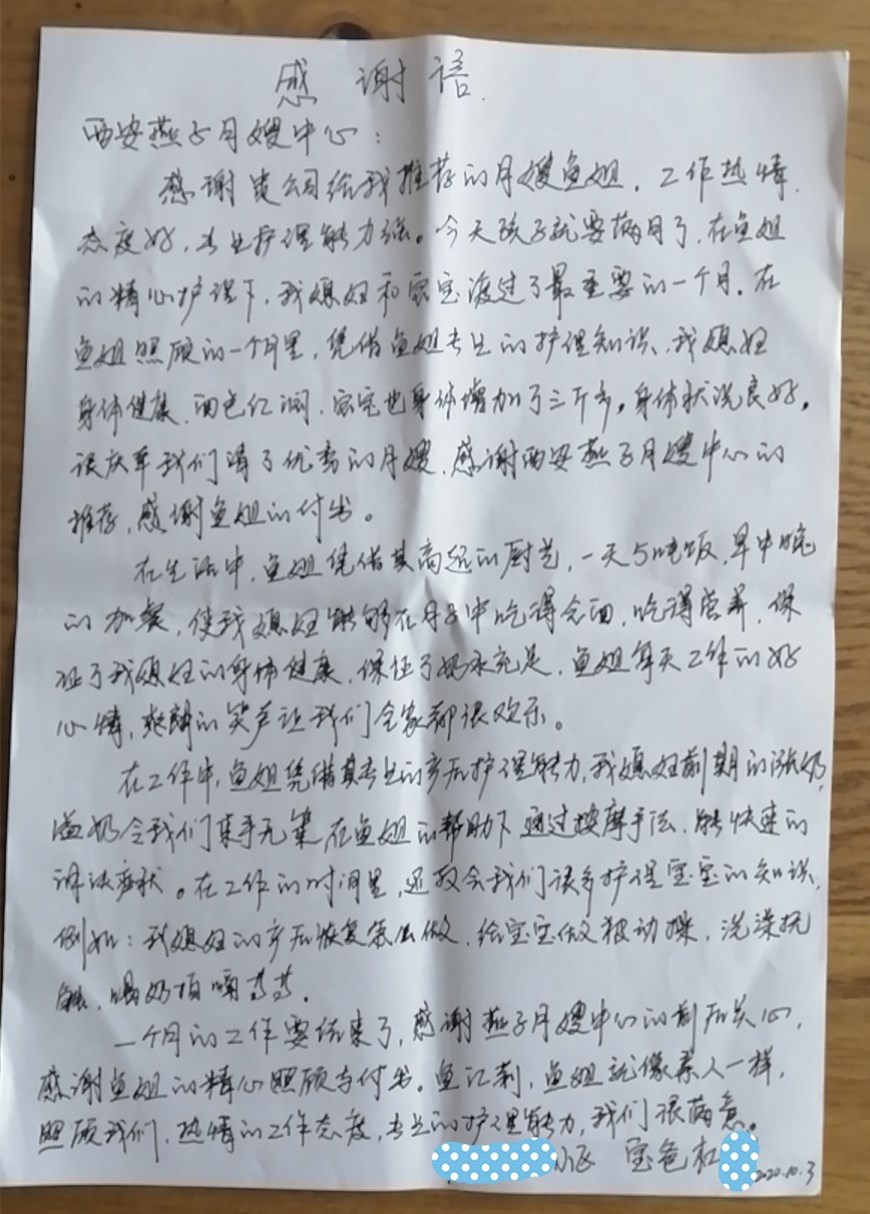 感谢语.
西安燕子月嫂中心：
感谢贵公司给我推荐的月嫂鱼姐，工作热情，
态度好，专业护理能力强。今天孩子就要满月了，在鱼姐
的精心护理下，我媳妇和宝宝渡过了最重要的一个月。在
鱼姐照顾的一个月里，凭借鱼姐专业的护理知识，我媳妇
身体健康，面色红润，宝宝也身体增加了三斤多，身体状况良好，
很庆幸我们请了优秀的月嫂，感谢西安燕子月嫂中心的
推荐，感谢鱼姐的付出。
在生活中，鱼姐凭借其高超的厨艺，一天5吨饭，早中晚
的加餐，使我媳妇能够在月子中吃得全面，吃得营养，保
证了我媳妇的身体健康，保证了奶水充足，鱼姐每天工作的好
心情，爽朗的笑声让我们全家都很欢乐。
在工作中，鱼姐凭借其专业的产后护理能力，我媳妇前期的涨奶，
溢奶令我们束手无策，在鱼姐的帮助下通过按摩手法，能快速的
症状。在工作的时间里，还教会我们很多护理宝宝的知识，
例如：我媳妇的产后恢复怎么做，给宝宝做被动操，洗澡抚
触，喝奶拍嗝等等。
一个月的工作要结束了，感谢燕子月嫂中心的前后关心，
感谢鱼姐的精心照顾与付出。鱼江莉，鱼姐就像亲人一样，
照顾我们，热情的工作态度，专业的护理能力，我们很满意。
小区 宝爸杜
2020.10.3